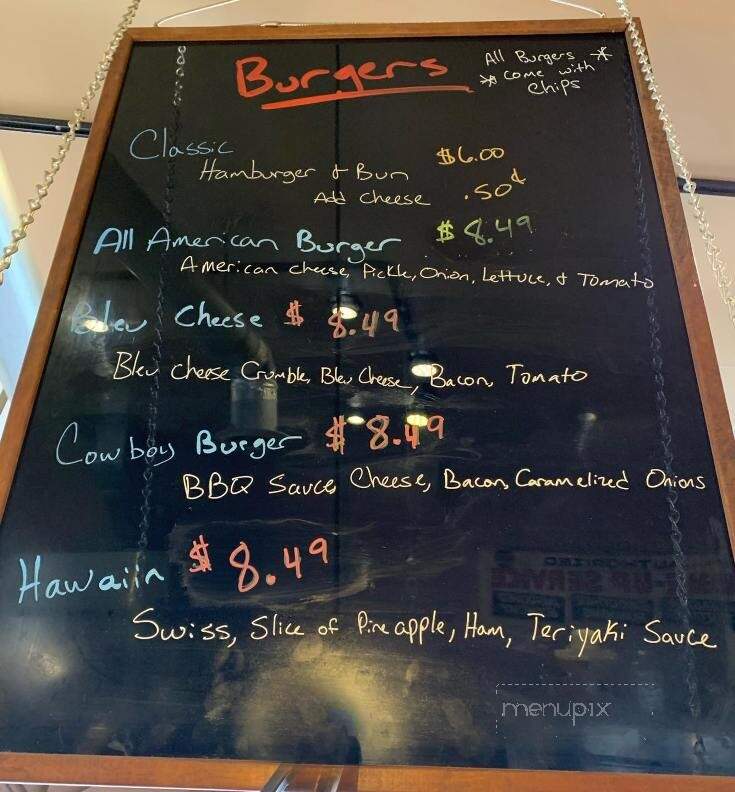 Burgers
All Burgers *
* Come with
Chips
Classic $6.00
Hamburger & Bun
Add Cheese .50¢
All American Burger $8.49
American cheese, Pickle, Onion, Lettuce, & Tomato
Bleu Cheese $8.49
Bleu Cheese Crumble, Bleu Cheese, Bacon, Tomato
Cowboy Burger $8.49
BBQ Sauce, Cheese, Bacon, Caramelized Onions
Hawaiin $8.49
Swiss, Slice of Pineapple, Ham, Teriyaki Sauce
menupix